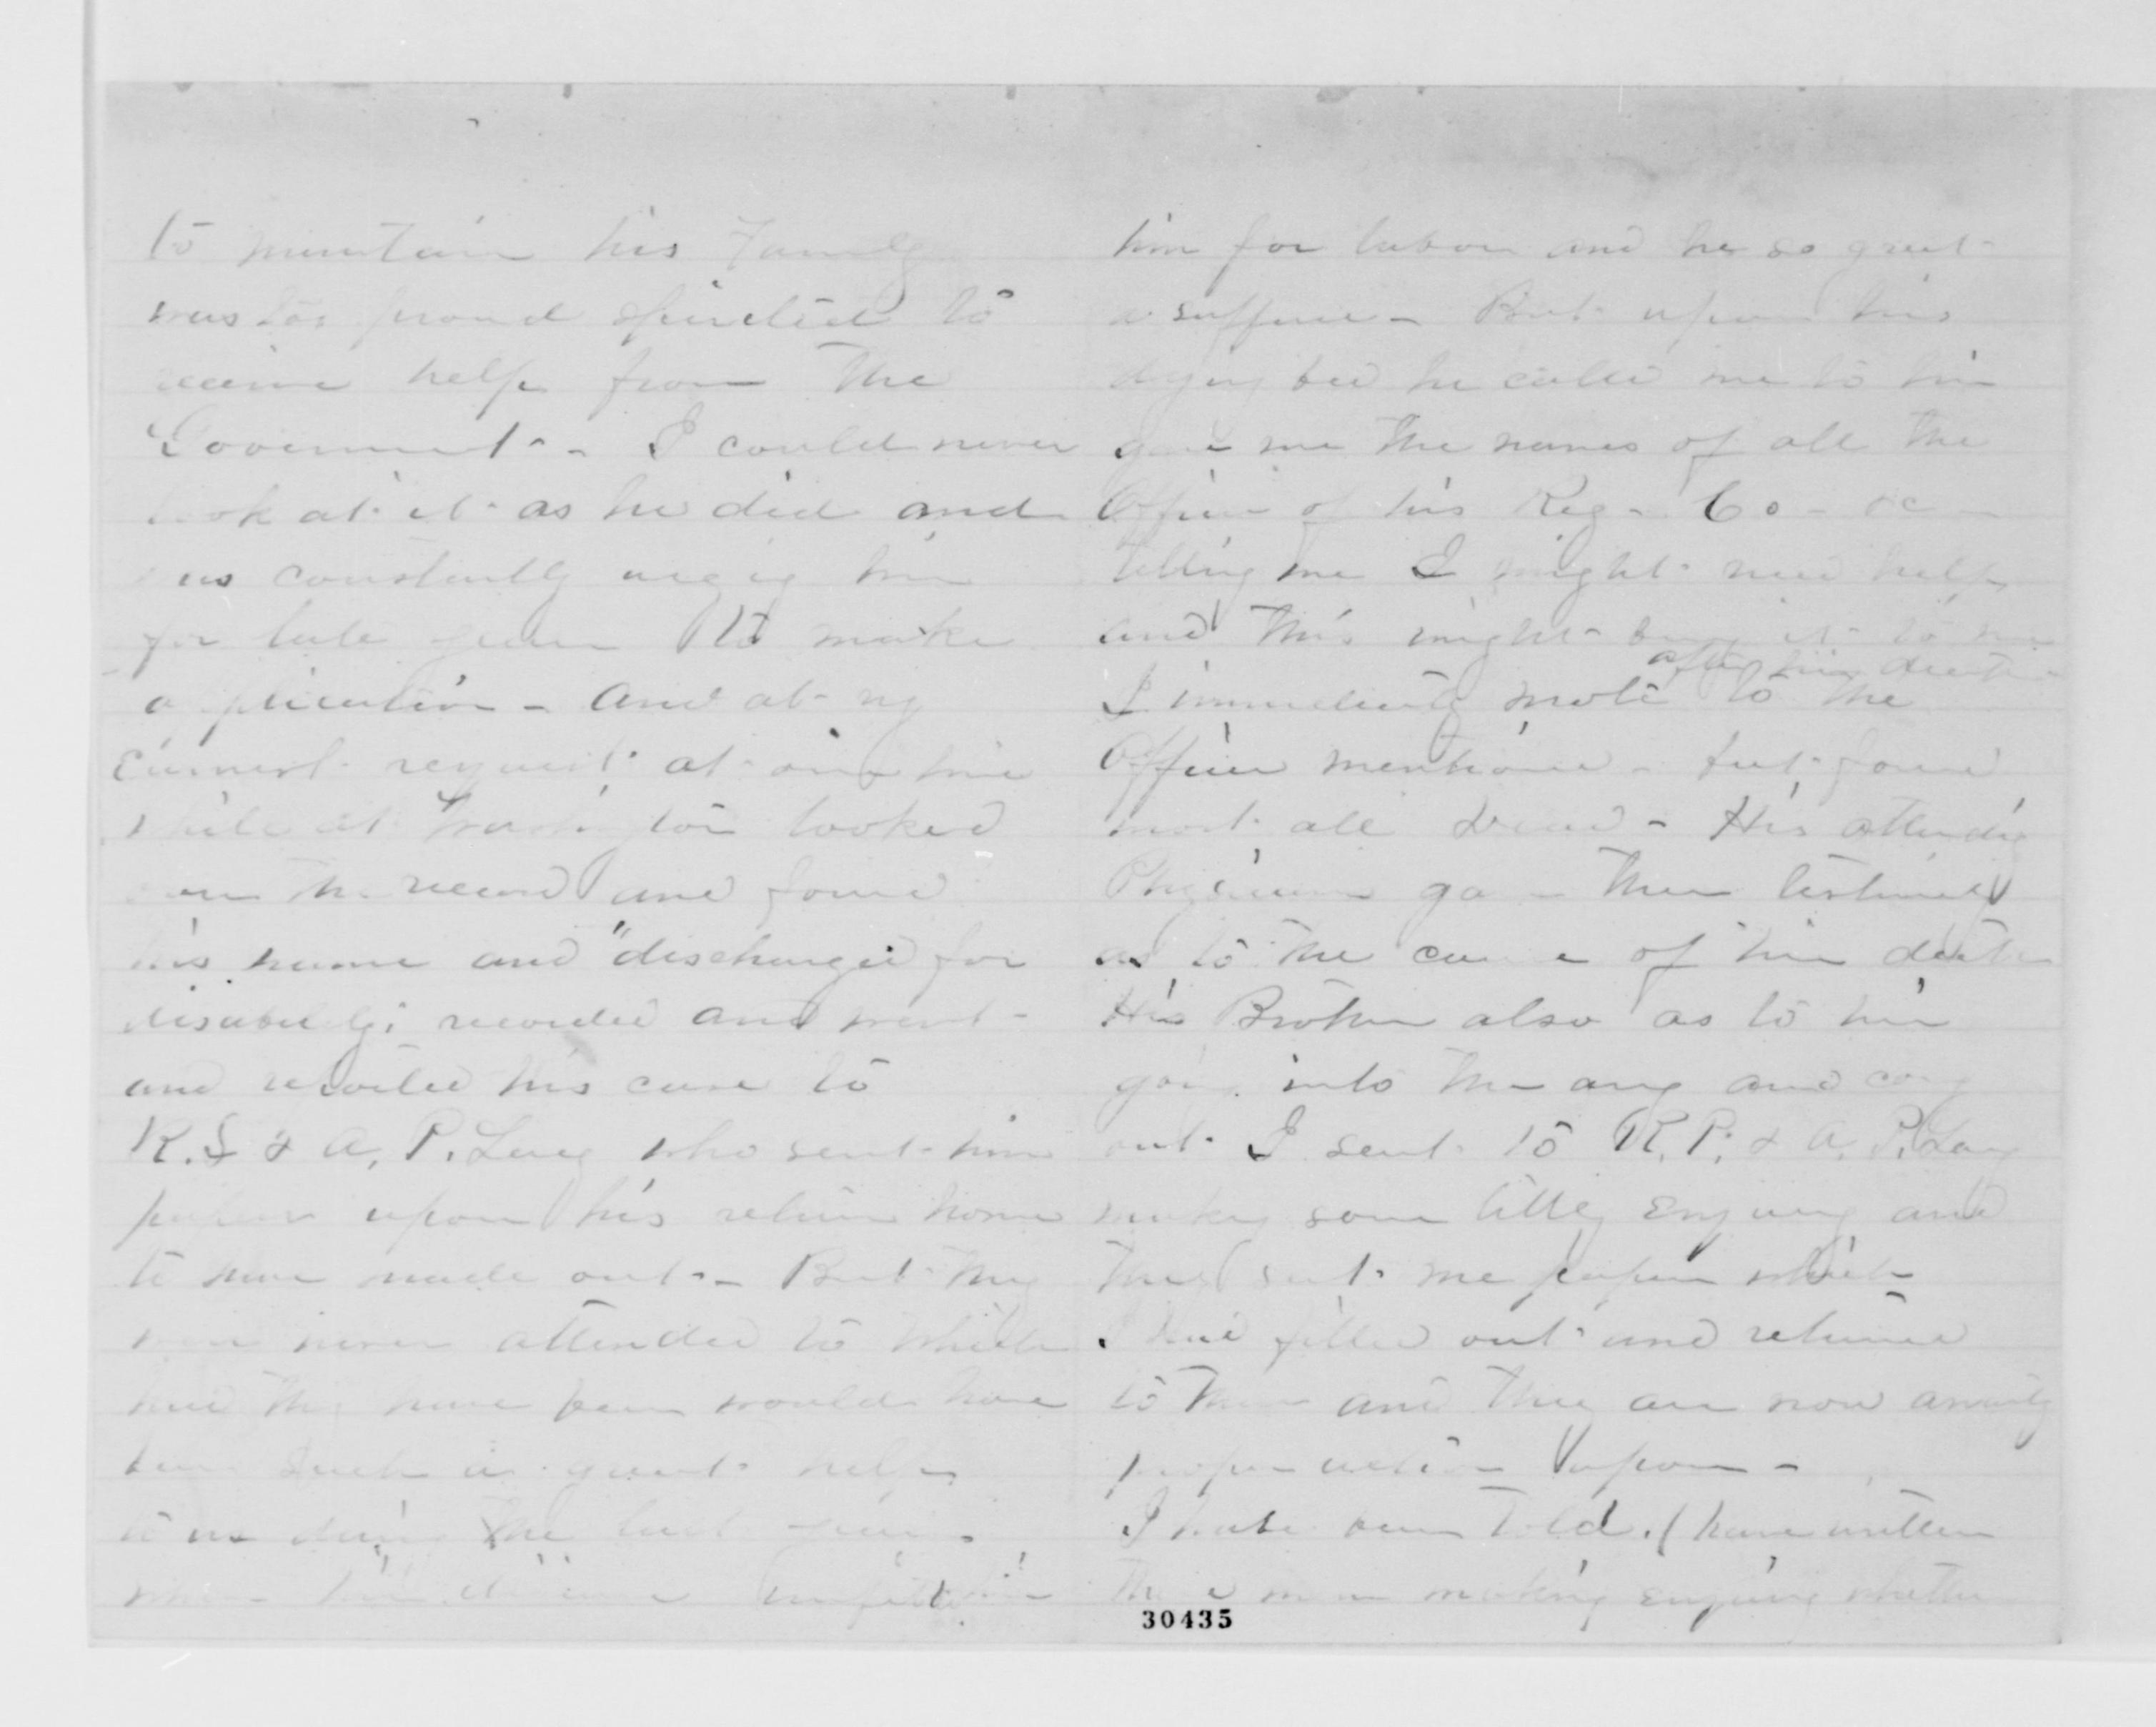 to maintain his Family
was too proud spirited to
receive help from the
Government - I could never
look at it as he did and
was constantly urging him
for late years to make
application - and at my
Earnest request at one time
while at Washington looked
over the record and found
his name and "discharged for
disability; recorded and went
and recited his case to
R. S & A. P. Lacey who sent him
papers upon his return home
to have made out - But they
were never attended to which
had they have been would have
been such a great help
to us during the last years
when his disease unfitted
him for labor and he so great
a sufferer - But upon his
dying bed he called me to him
gave me the names of all the
Officers of his Reg - Co - &c -
telling me I might need help
and this might bring it to me
after his death
I immediately wrote to the
Officers mentioned - but found
most all dead - His attending
Physicians gave their testimony
as to the cause of his death
His Brother also as to his
going into the army and coming
out I sent to R. P. & A. P. Lacey
making some little Enquiry and
they sent me papers which
I had filled out and returned
to them and they are now awaiting
proper action upon -
I have been told, (have written
these men making enquiry whether
30435